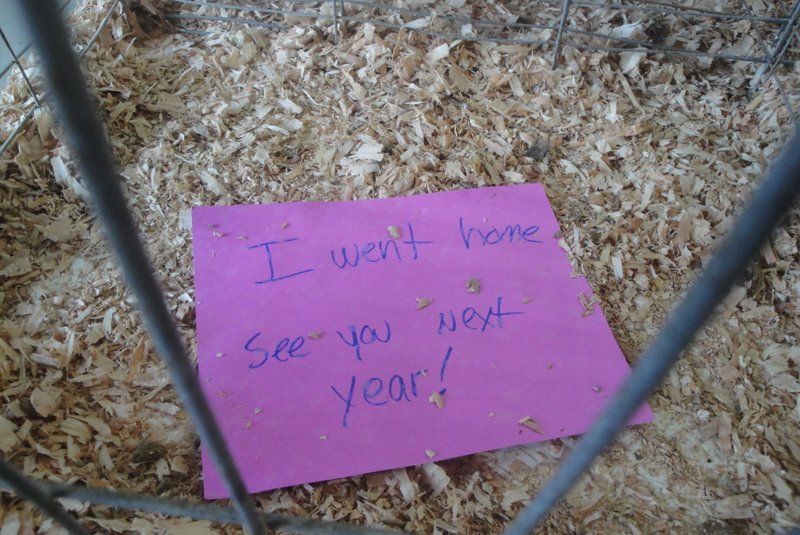 I went home
See you Next
year!